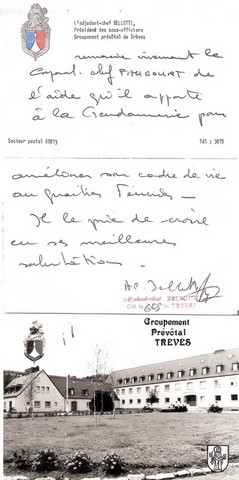 L'adjudant-chef BELLOTTI,
Président des sous-officiers
Groupement prévôtal de Trèves
remercie vivement le
Caporal-chef PITUCOURT de
l'aide qu'il apporte
à la Gendarmerie pour
Secteur postal 69813
Tél : 3015
améliorer son cadre de vie
au quartier
Il le prie de croire
en ses meilleures
salutations.
Adjudant-chef BELLOTTI
de TREVES
Groupement
Prévôtal
TREVES